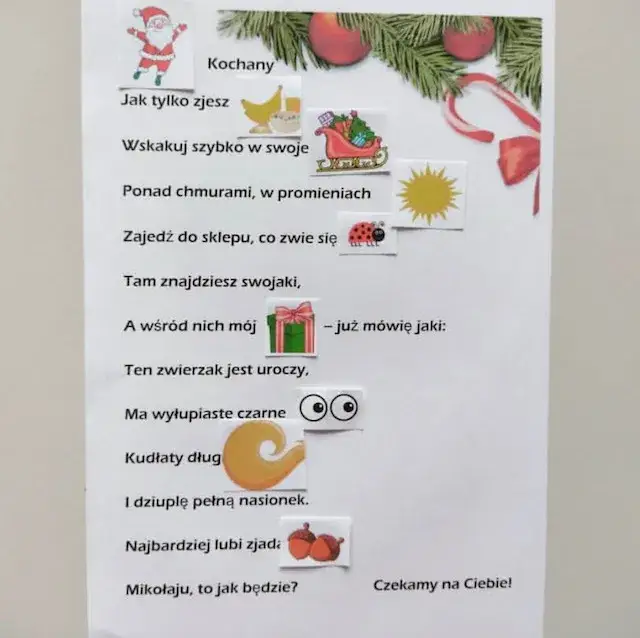 Kochany
Jak tylko zjesz
Wskakuj szybko w swoje
Ponad chmurami, w promieniach
Zajedź do sklepu, co zwie się
Tam znajdziesz swojaki,
A wśród nich mój – już mówię jaki:
Ten zwierzak jest uroczy,
Ma wyłupiaste czarne
Kudłaty dług
I dziuplę pełną nasionek.
Najbardziej lubi zjada
Mikołaju, to jak będzie? Czekamy na Ciebie!